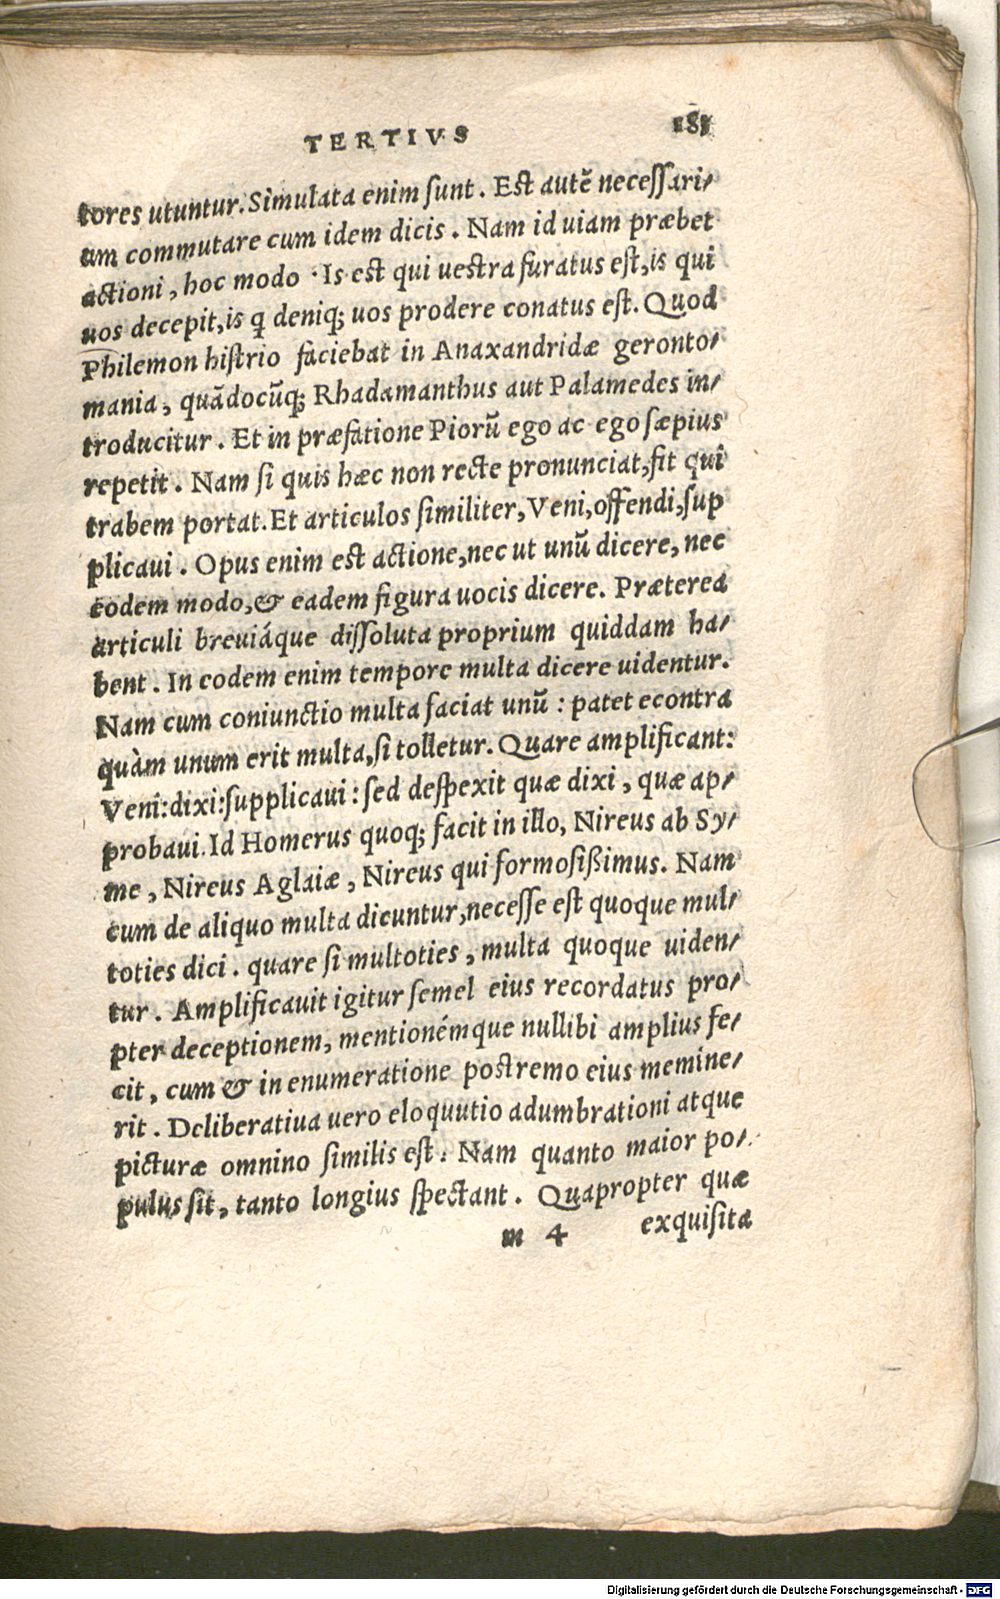 TERTIVS 183
tores utuntur. Simulata enim ſunt. Eſt autē neceſſari/
um commutare cum idem dicis. Nam id uiam præbet
actioni, hoc modo. Is eſt qui ueſtra furatus eſt, is qui
uos decepit, is q deniq; uos prodere conatus eſt. Quod
Philemon hiſtrio faciebat in Anaxandridæ geronto/
mania, quādocūq; Rhadamanthus aut Palamedes in/
troducitur. Et in præfatione Piorū ego ac ego ſæpius
repetit. Nam ſi quis hæc non recte pronunciat, fit qui
trabem portat. Et articulos ſimiliter, Veni, offendi, ſup
plicaui. Opus enim eſt actione, nec ut unū dicere, nec
eodem modo, & eadem figura uocis dicere. Præterea
articuli breuiáque diſſoluta proprium quiddam ha/
bent. In eodem enim tempore multa dicere uidentur.
Nam cum coniunctio multa faciat unū: patet econtra
quàm unum erit multa, ſi tolletur. Quare amplificant:
Veni: dixi: ſupplicaui: ſed deſpexit quæ dixi, quæ ap/
probaui. Id Homerus quoq; facit in illo, Nireus ab Sy/
me, Nireus Aglaiæ, Nireus qui formoſißimus. Nam
cum de aliquo multa dicuntur, neceſſe eſt quoque mul/
toties dici. quare ſi multoties, multa quoque uiden/
tur. Amplificauit igitur ſemel eius recordatus pro/
pter deceptionem, mentionémque nullibi amplius fe/
cit, cum & in enumeratione poſtremo eius memine/
rit. Deliberatiua uero eloquutio adumbrationi atque
picturæ omnino ſimilis eſt. Nam quanto maior po/
pulus ſit, tanto longius ſpectant. Quapropter quæ
m 4 exquiſita
Digitalisierung gefördert durch die Deutsche Forschungsgemeinschaft - DFG